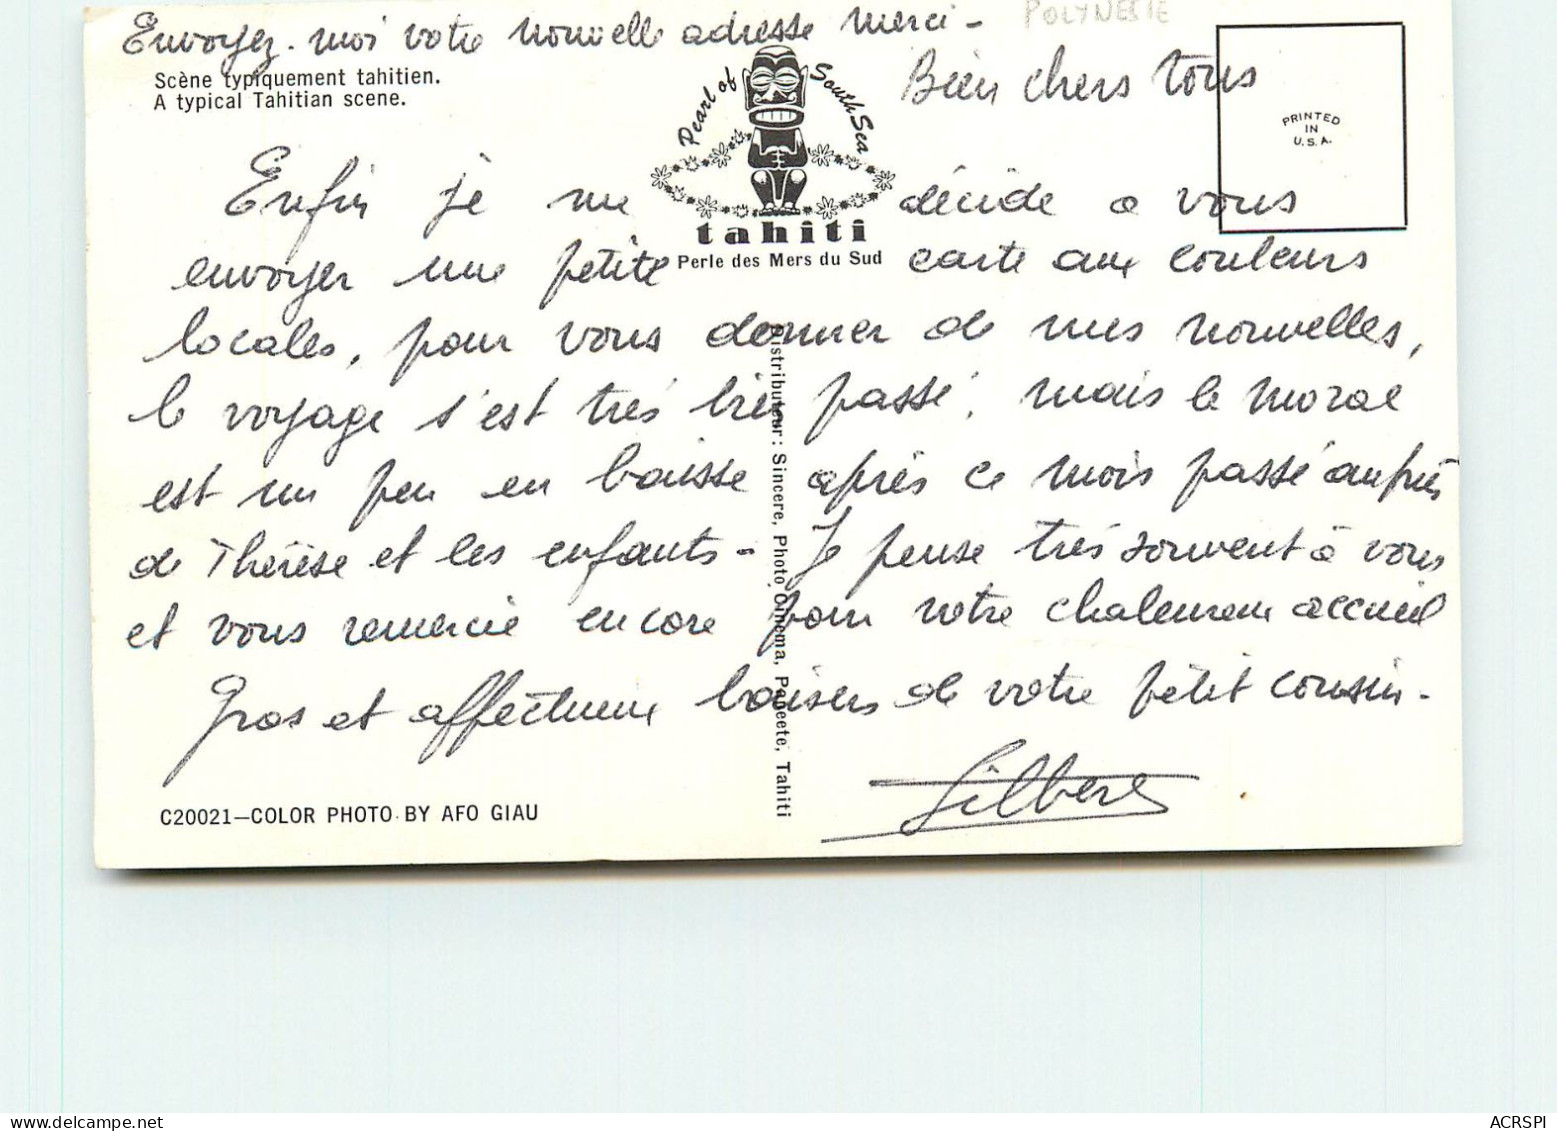 Envoyez-moi votre nouvelle adresse merci -
POLYNESIE
Scène typiquement tahitien.
A typical Tahitian scene.
Pearl of South Sea
tahiti
Perle des Mers du Sud
PRINTED
IN
U.S.A.
Bien chers tous
Enfin je me décide a vous
envoyer une petite carte aux couleurs
locales, pour vous donner de mes nouvelles,
le voyage s'est très bien passé, mais le moral
est un peu en baisse après ce mois passé auprès
de Thérèse et les enfants - Je pense très souvent à vous
et vous remercie encore pour votre chaleureux accueil
Gros et affectueux baisers de votre petit cousin -
Gilbert
Distributeur: Sincere, Photo Cinema, Papeete, Tahiti
C20021—COLOR PHOTO BY AFO GIAU
ACRSPI